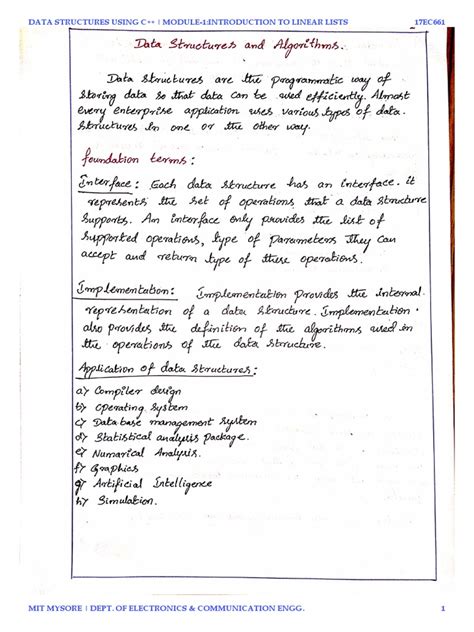 DATA STRUCTURES USING C++ | MODULE-1:INTRODUCTION TO LINEAR LISTS 17EC661
Data Structures and Algorithms.
Data structures are the programmatic way of
storing data so that data can be used efficiently. Almost
every enterprise application uses various types of data.
structures in one or the other way.
foundation terms:
Interface: Each data structure has an interface. it
represents the set of operations that a data structure
supports. An interface only provides the list of
supported operations, type of parameters they can
accept and return type of these operations.
Implementation: Implementation provides the Internal
representation of a data structure. Implementation
also provides the definition of the algorithms used in
the operations of the data structure.
Application of data structures:
a) Compiler design
b) Operating System
c) Database management system
d) Statistical analysis package.
e) Numarical Analysis.
f) Graphics
g) Artificial Intelligence
h) Simulation.
MIT MYSORE | DEPT. OF ELECTRONICS & COMMUNICATION ENGG. 1